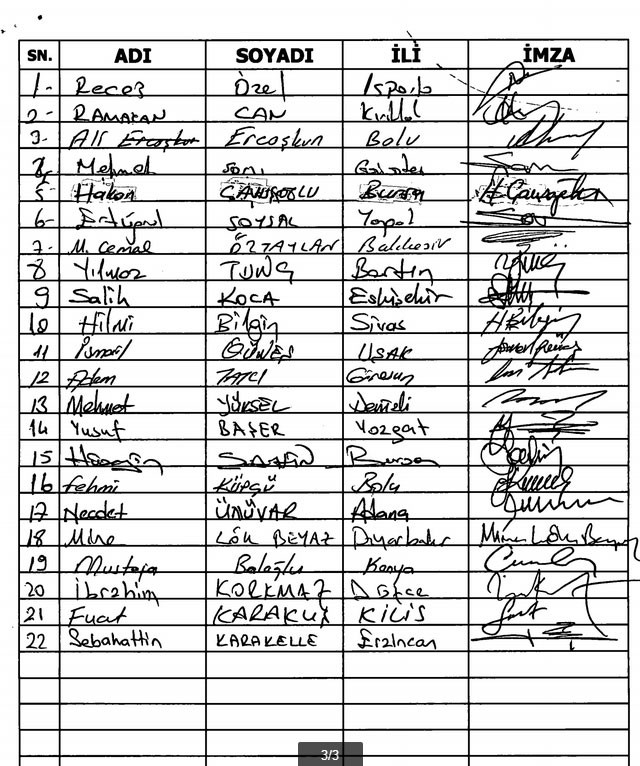 SN. ADI SOYADI İLİ İMZA
1- Recep Özel Isparta
2- RAMAZAN CAN Kırıkkale
3- Ali Ercoşkun Ercoşkun Bolu
Mehmet
5- Hakan ÇAVUŞOĞLU Bursa H Çavuşoğlu
6- Ertuğrul SOYSAL Yozgat
7- M. Cemal ÖZTAYLAN Balıkesir
8 Yılmaz TUNÇ Bartın
9 Salih KOCA Eskişehir
10 Hilmi Bilgin Sivas H Bilgin
11 İsmail GÜNEŞ UŞAK
12 Adem TATLI Giresun
13 Mehmet YÜKSEL Denizli
14 Yusuf BAŞER Yozgat
15 Hüseyin ŞAHİN Bursa
16 Fehmi KÜPÇÜ Bolu
17 Necdet ÜNÜVAR Adana
18 Mine LÖK BEYAZ Diyarbakır Mine Lök Beyaz
19 Mustafa Baloğlu Konya
20 İbrahim KORKMAZ Düzce
21 Fuat KARAKUŞ KİLİS
22 Sebahattin KARAKELLE Erzincan
3/3